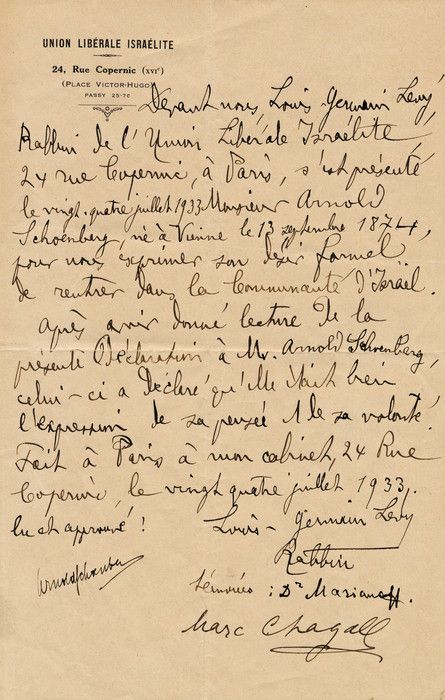 UNION LIBÉRALE ISRAÉLITE
24, Rue Copernic (XVIe)
(PLACE VICTOR-HUGO)
PASSY 25-76
Devant nous, Louis-Germain Lévy,
Rabbin de l'Union Libérale Israélite,
24 rue Copernic, à Paris, s'est présenté
le vingt-quatre juillet 1933 Monsieur Arnold
Schoenberg, né à Vienne le 13 septembre 1874,
pour nous exprimer son désir formel
de rentrer dans la Communauté d'Israël.
Après avoir donné lecture de la
présente Déclaration à Mr. Arnold Schoenberg,
celui-ci a déclaré qu'elle était bien
l'expression de sa pensée & de sa volonté.
Fait à Paris à mon cabinet, 24 Rue
Copernic, le vingt quatre juillet 1933.
lu et approuvé!
Louis-Germain Lévy
Rabbin
Arnold Schoenberg
Témoins: Dr Marianoff.
Marc Chagall